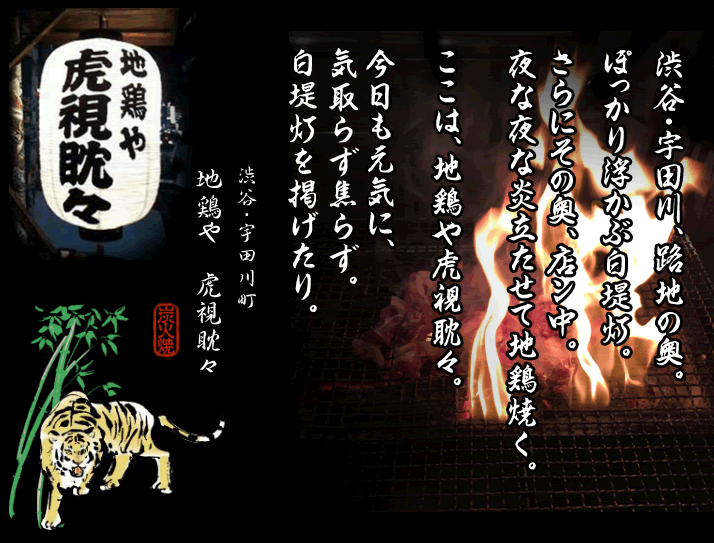 渋谷・宇田川、路地の奥。
ぽっかり浮かぶ白堤灯。
さらにその奥、店ン中。
夜な夜な炎立たせて地鶏焼く。
ここは、地鶏や虎視眈々。
今日も元気に、
気取らず焦らず。
白堤灯を掲げたり。
渋谷・宇田川町
地鶏や 虎視眈々
炭火焼
地鶏や
虎視眈々